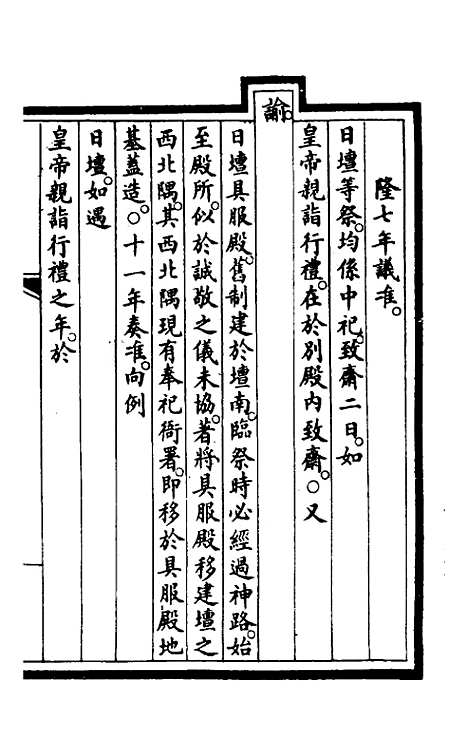 隆七年議准。
日壇等祭。均係中祀。致齋二日。如
皇帝親詣行禮。在於別殿内致齋。○又
諭。
日壇具服殿。舊制建於壇南。臨祭時必經過神路。始
至殿所。似於誠敬之儀未協。著將具服殿移建壇之
西北隅。其西北隅現有奉祀衙署。即移於具服殿地
基蓋造。○十一年奏准。向例
日壇。如遇
皇帝親詣行禮之年。於